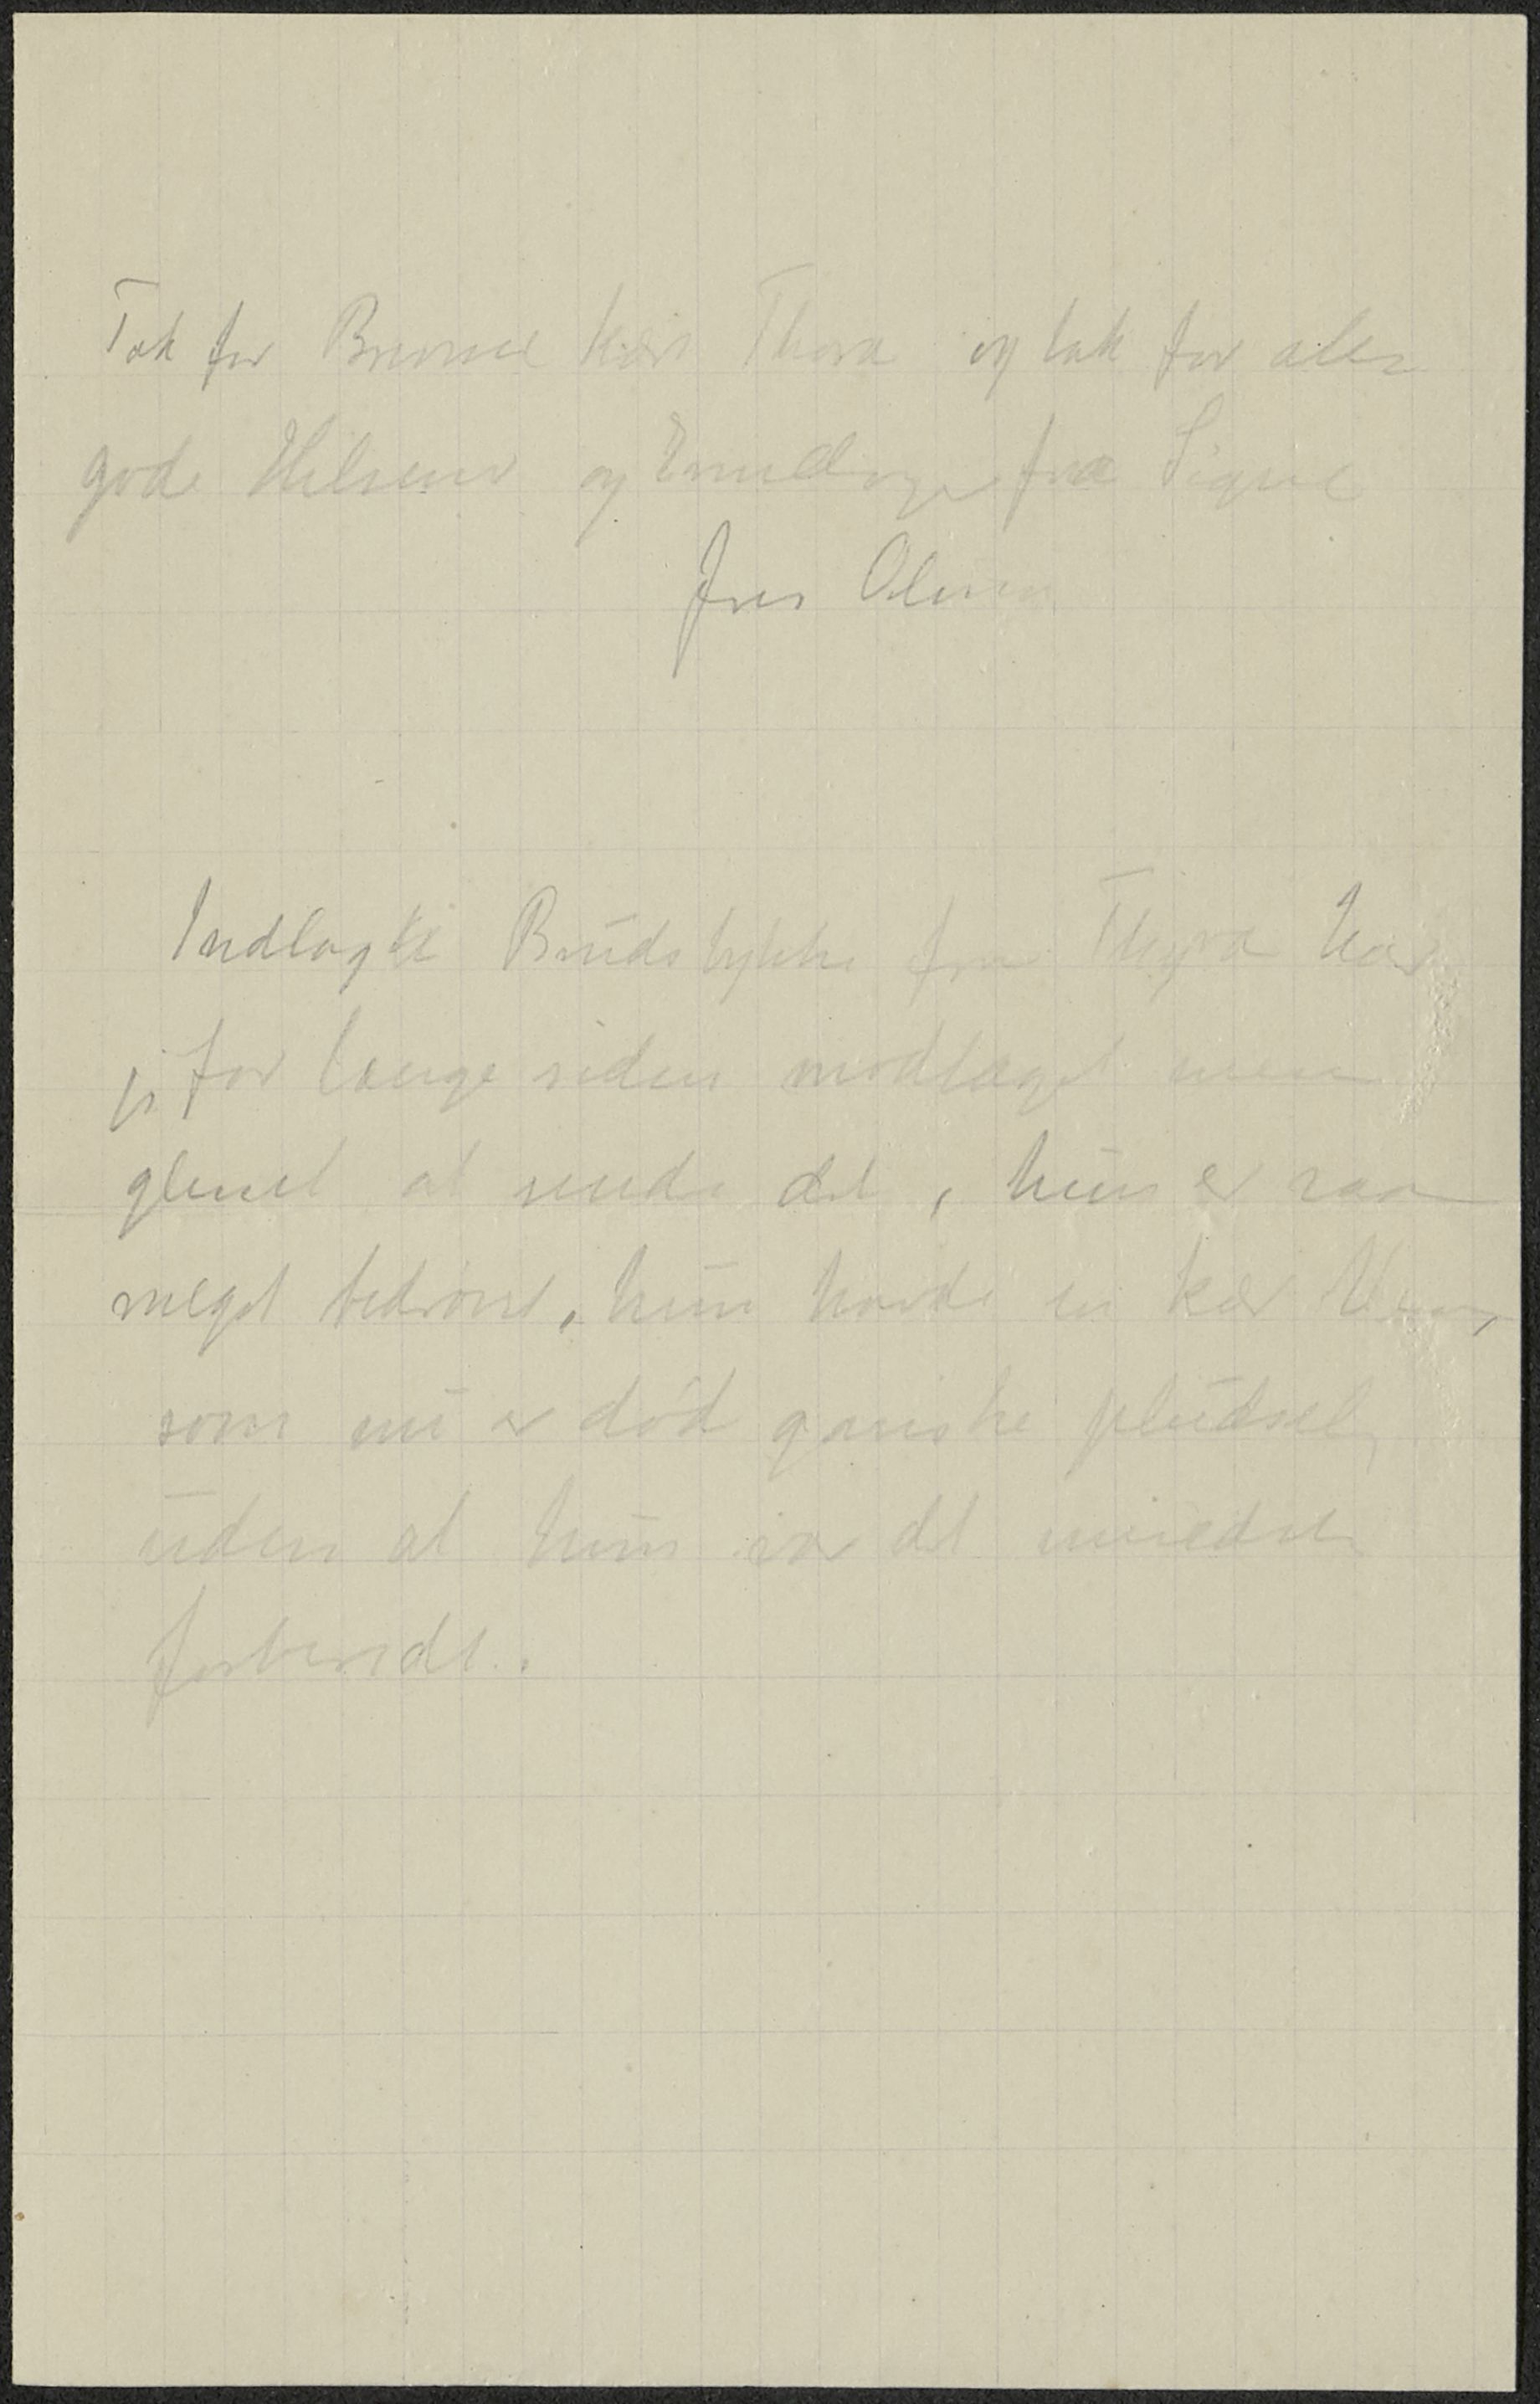 Tak for Brevene kære Thora og tak for alle
gode Hilsener og fra Signe
Jres Olsen
Indlagte Brudstykke fra Thyra har
je for længe siden modtaget men
glemt at sende det, hun er saa
meget bedrøvet, hun havde en kær Ven,
som nu er død ganske pludselig
uden at hun var det mindste
forberedt.